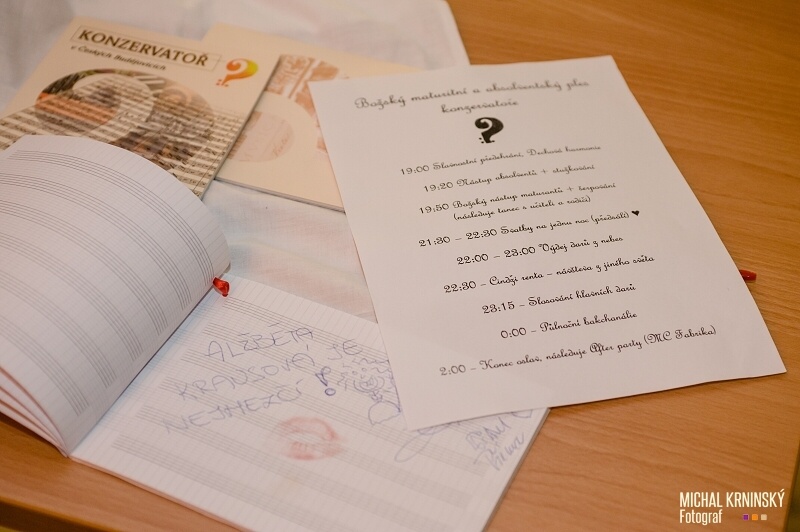 KONZERVATOŘ
v Českých Budějovicích
Božský maturitní a absolventský ples
konzervatoře
19:00 Slavnostní předehrání, Dechová harmonie
19:20 Nástup absolventů + stužkování
19:50 Božský nástup maturantů + šerpování
(následuje tanec s učiteli a rodiči)
21:30 – 22:30 Svatby na jednu noc (předsálí) ♥
22:00 – 23:00 Výdej darů z nebes
22:30 – Cindži renta – návštěva z jiného světa
23:15 – Slosování hlavních darů
0:00 – Půlnoční bakchanálie
2:00 – Konec oslav, následuje After party (MC Fabrika)
ALŽBĚTA
KRAUSOVÁ JE
NEJHEZČÍ!
MICHAL KRNINSKÝ
Fotograf